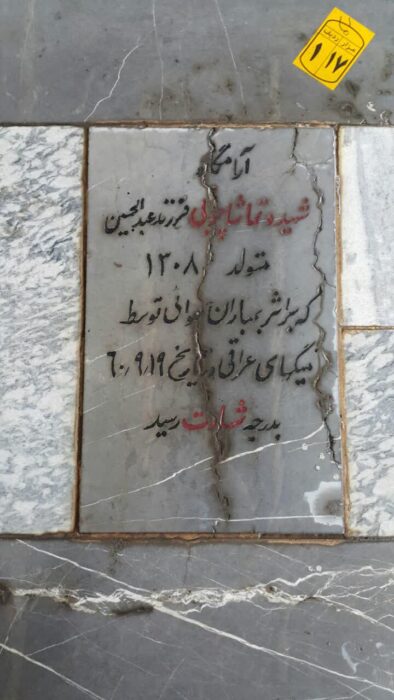 ۱ ۱۷
آرامگاه
شهیده فرزند عبدالحسین
متولد ۱۳۰۸
که براثر بمباران هوائی توسط
میگهای عراقی در تاریخ ۶۰/۹/۱۹
بدرجه شهادت رسید